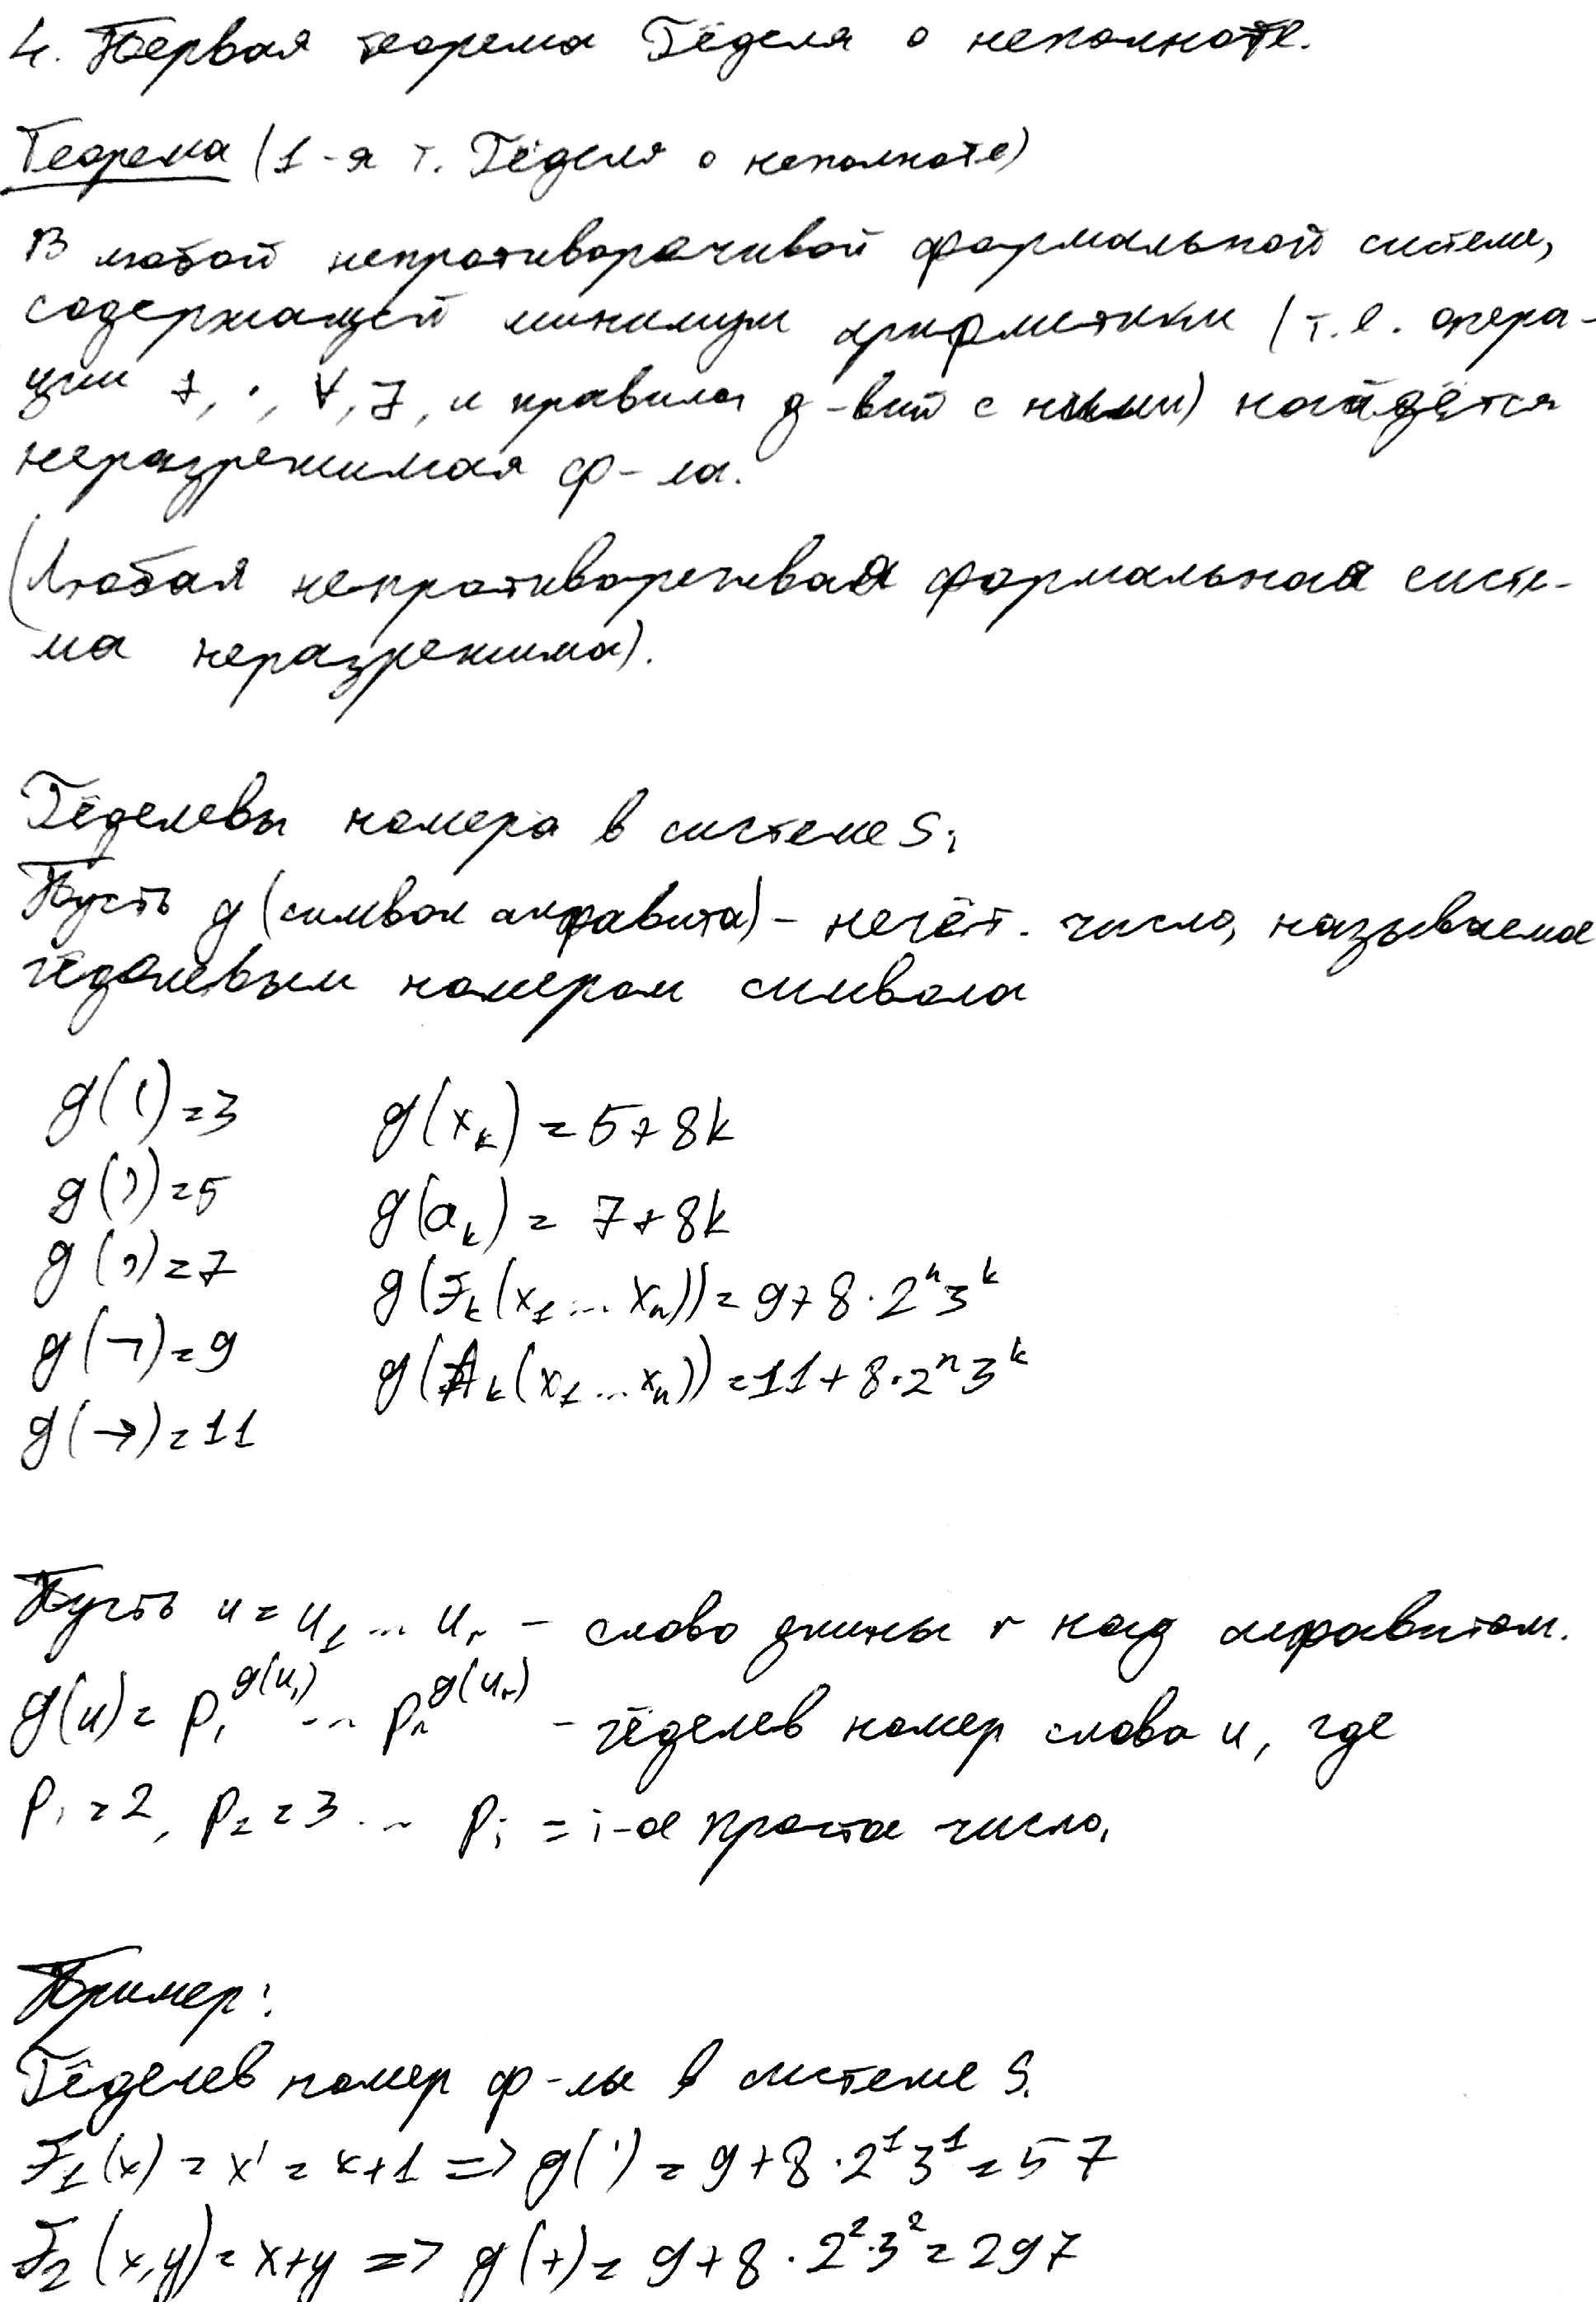 4. Первая теорема Гёделя о неполноте.
Теорема (1-я т. Гёделя о неполноте)
В любой непротиворечивой формальной системе,
содержащей минимум арифметики (т.е. опера-
ции +, ·, ∀, ∃, и правила д-вий с ними) найдётся
неразрешимая ф-ла.
(Любая непротиворечивая формальная систе-
ма неразрешима).
Гёделевы номера в системе S.
Пусть g(символ алфавита) – нечёт. число, называемое
гёделевым номером символа
g(()=3 g(x_k) = 5+8k
g())=5 g(a_k) = 7+8k
g(,)=7 g(F_k(x_1...x_n)) = 9+8·2^n 3^k
g(¬)=9 g(A_k(x_1...x_n)) = 11+8·2^n 3^k
g(→)=11
Пусть u=u_1...u_r – слово длины r над алфавитом.
g(u)= p_1^{g(u_1)} ... p_r^{g(u_r)} – гёделев номер слова u, где
p_1=2, p_2=3 ... p_i = i-ое простое число.
Пример:
Гёделев номер ф-лы в системе S.
F_1(x) = x' = x+1 => g(') = 9+8·2^1 3^1 = 57
F_2(x,y) = x+y => g(+) = 9+8·2^2·3^2 = 297